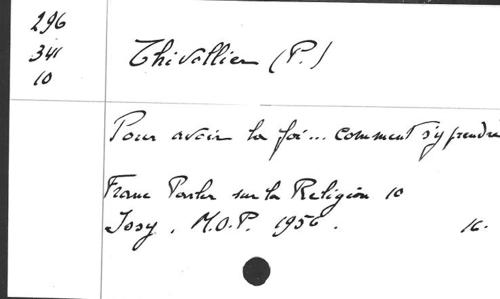 296
341
10
Thivollier (P.)
Pour avoir la foi... comment s'y prendre
Franc Parler sur la Religion 10
Issy, M.O.P. 1956. 16.